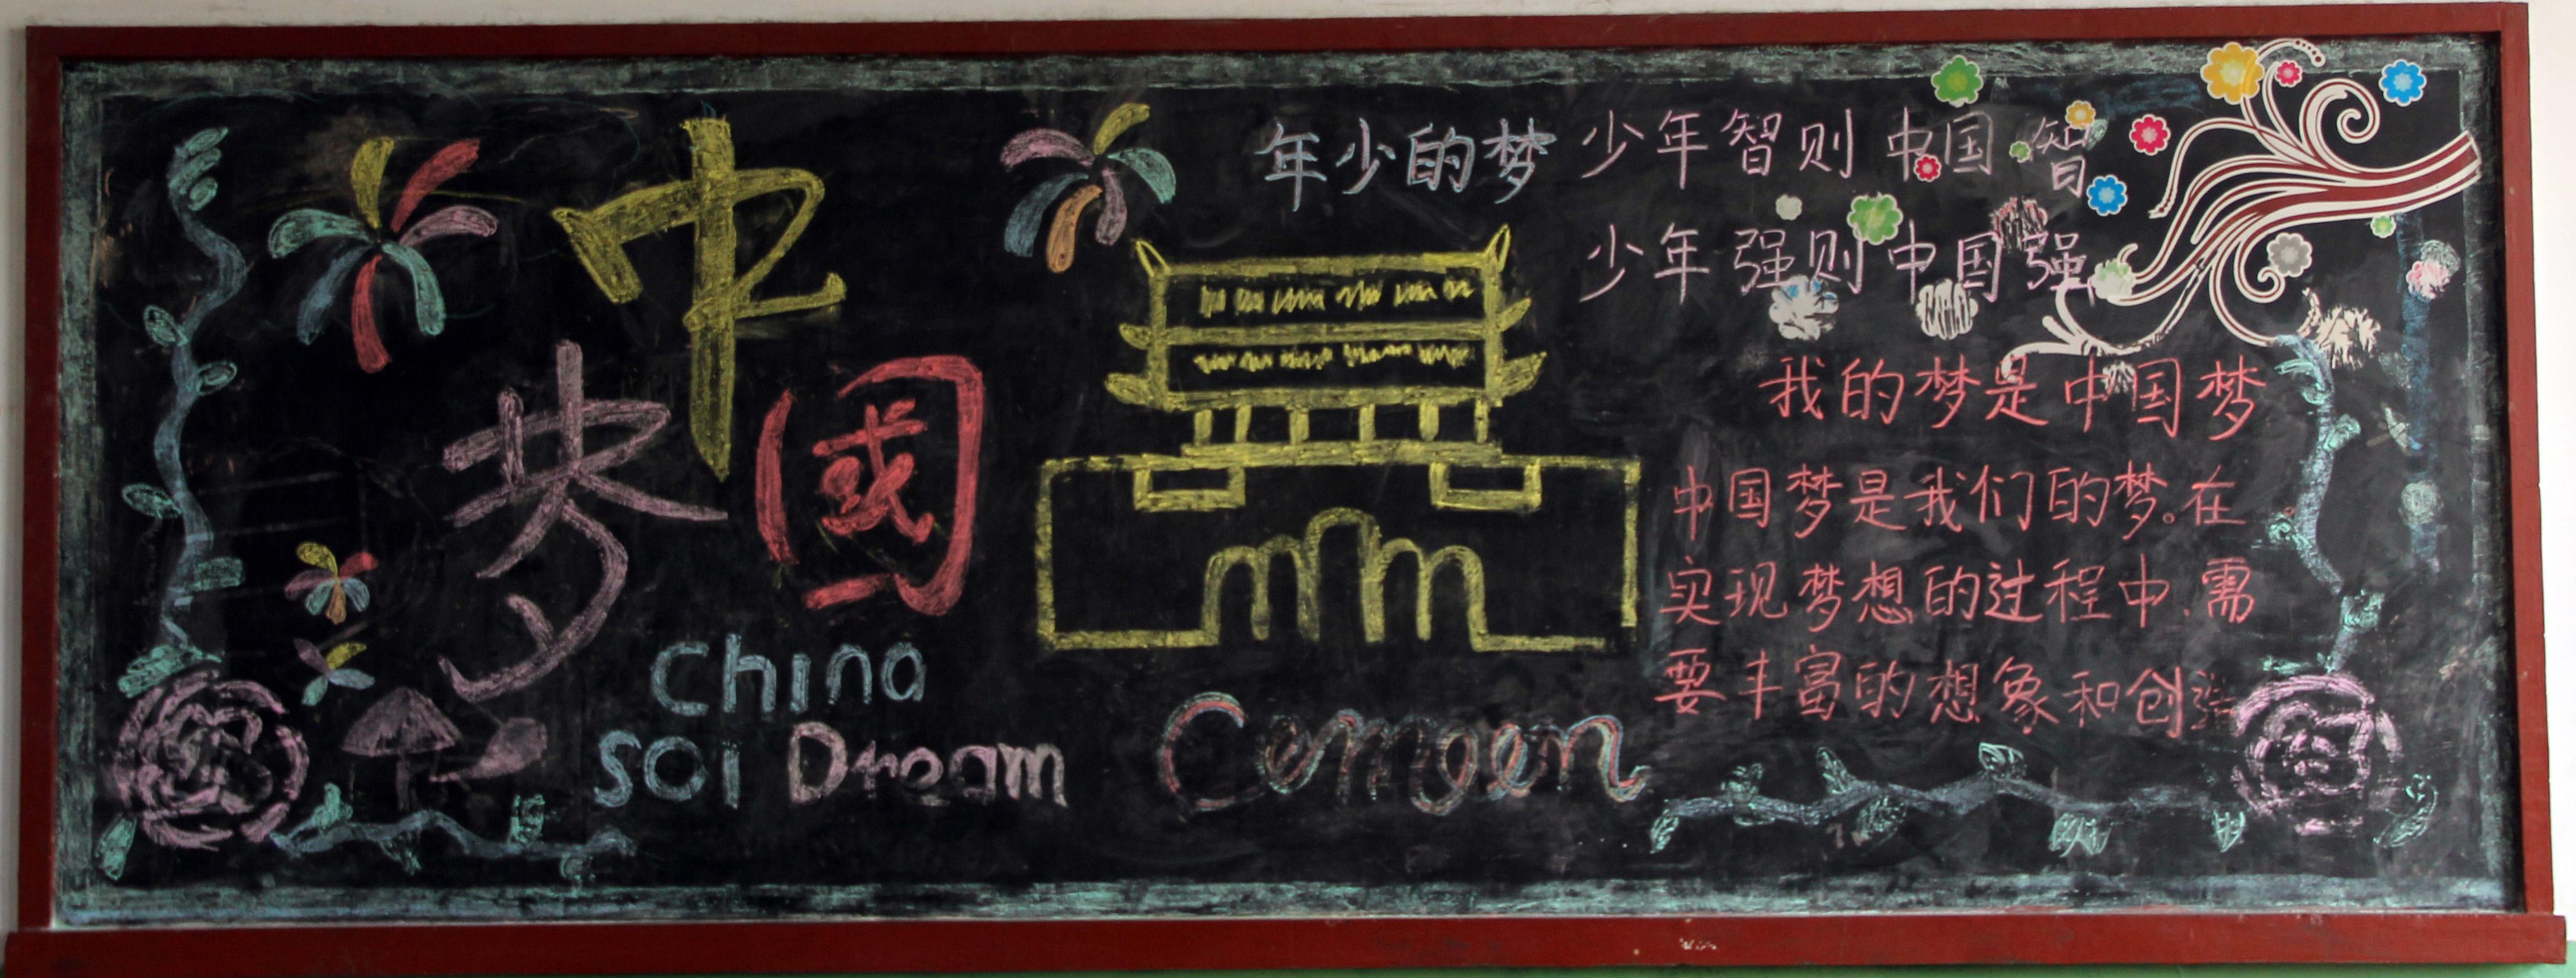 中国梦
China
SOI Dream
Comgen
年少的梦
少年智则中国智
少年强则中国强
我的梦是中国梦
中国梦是我们的梦。在
实现梦想的过程中、需
要丰富的想象和创造